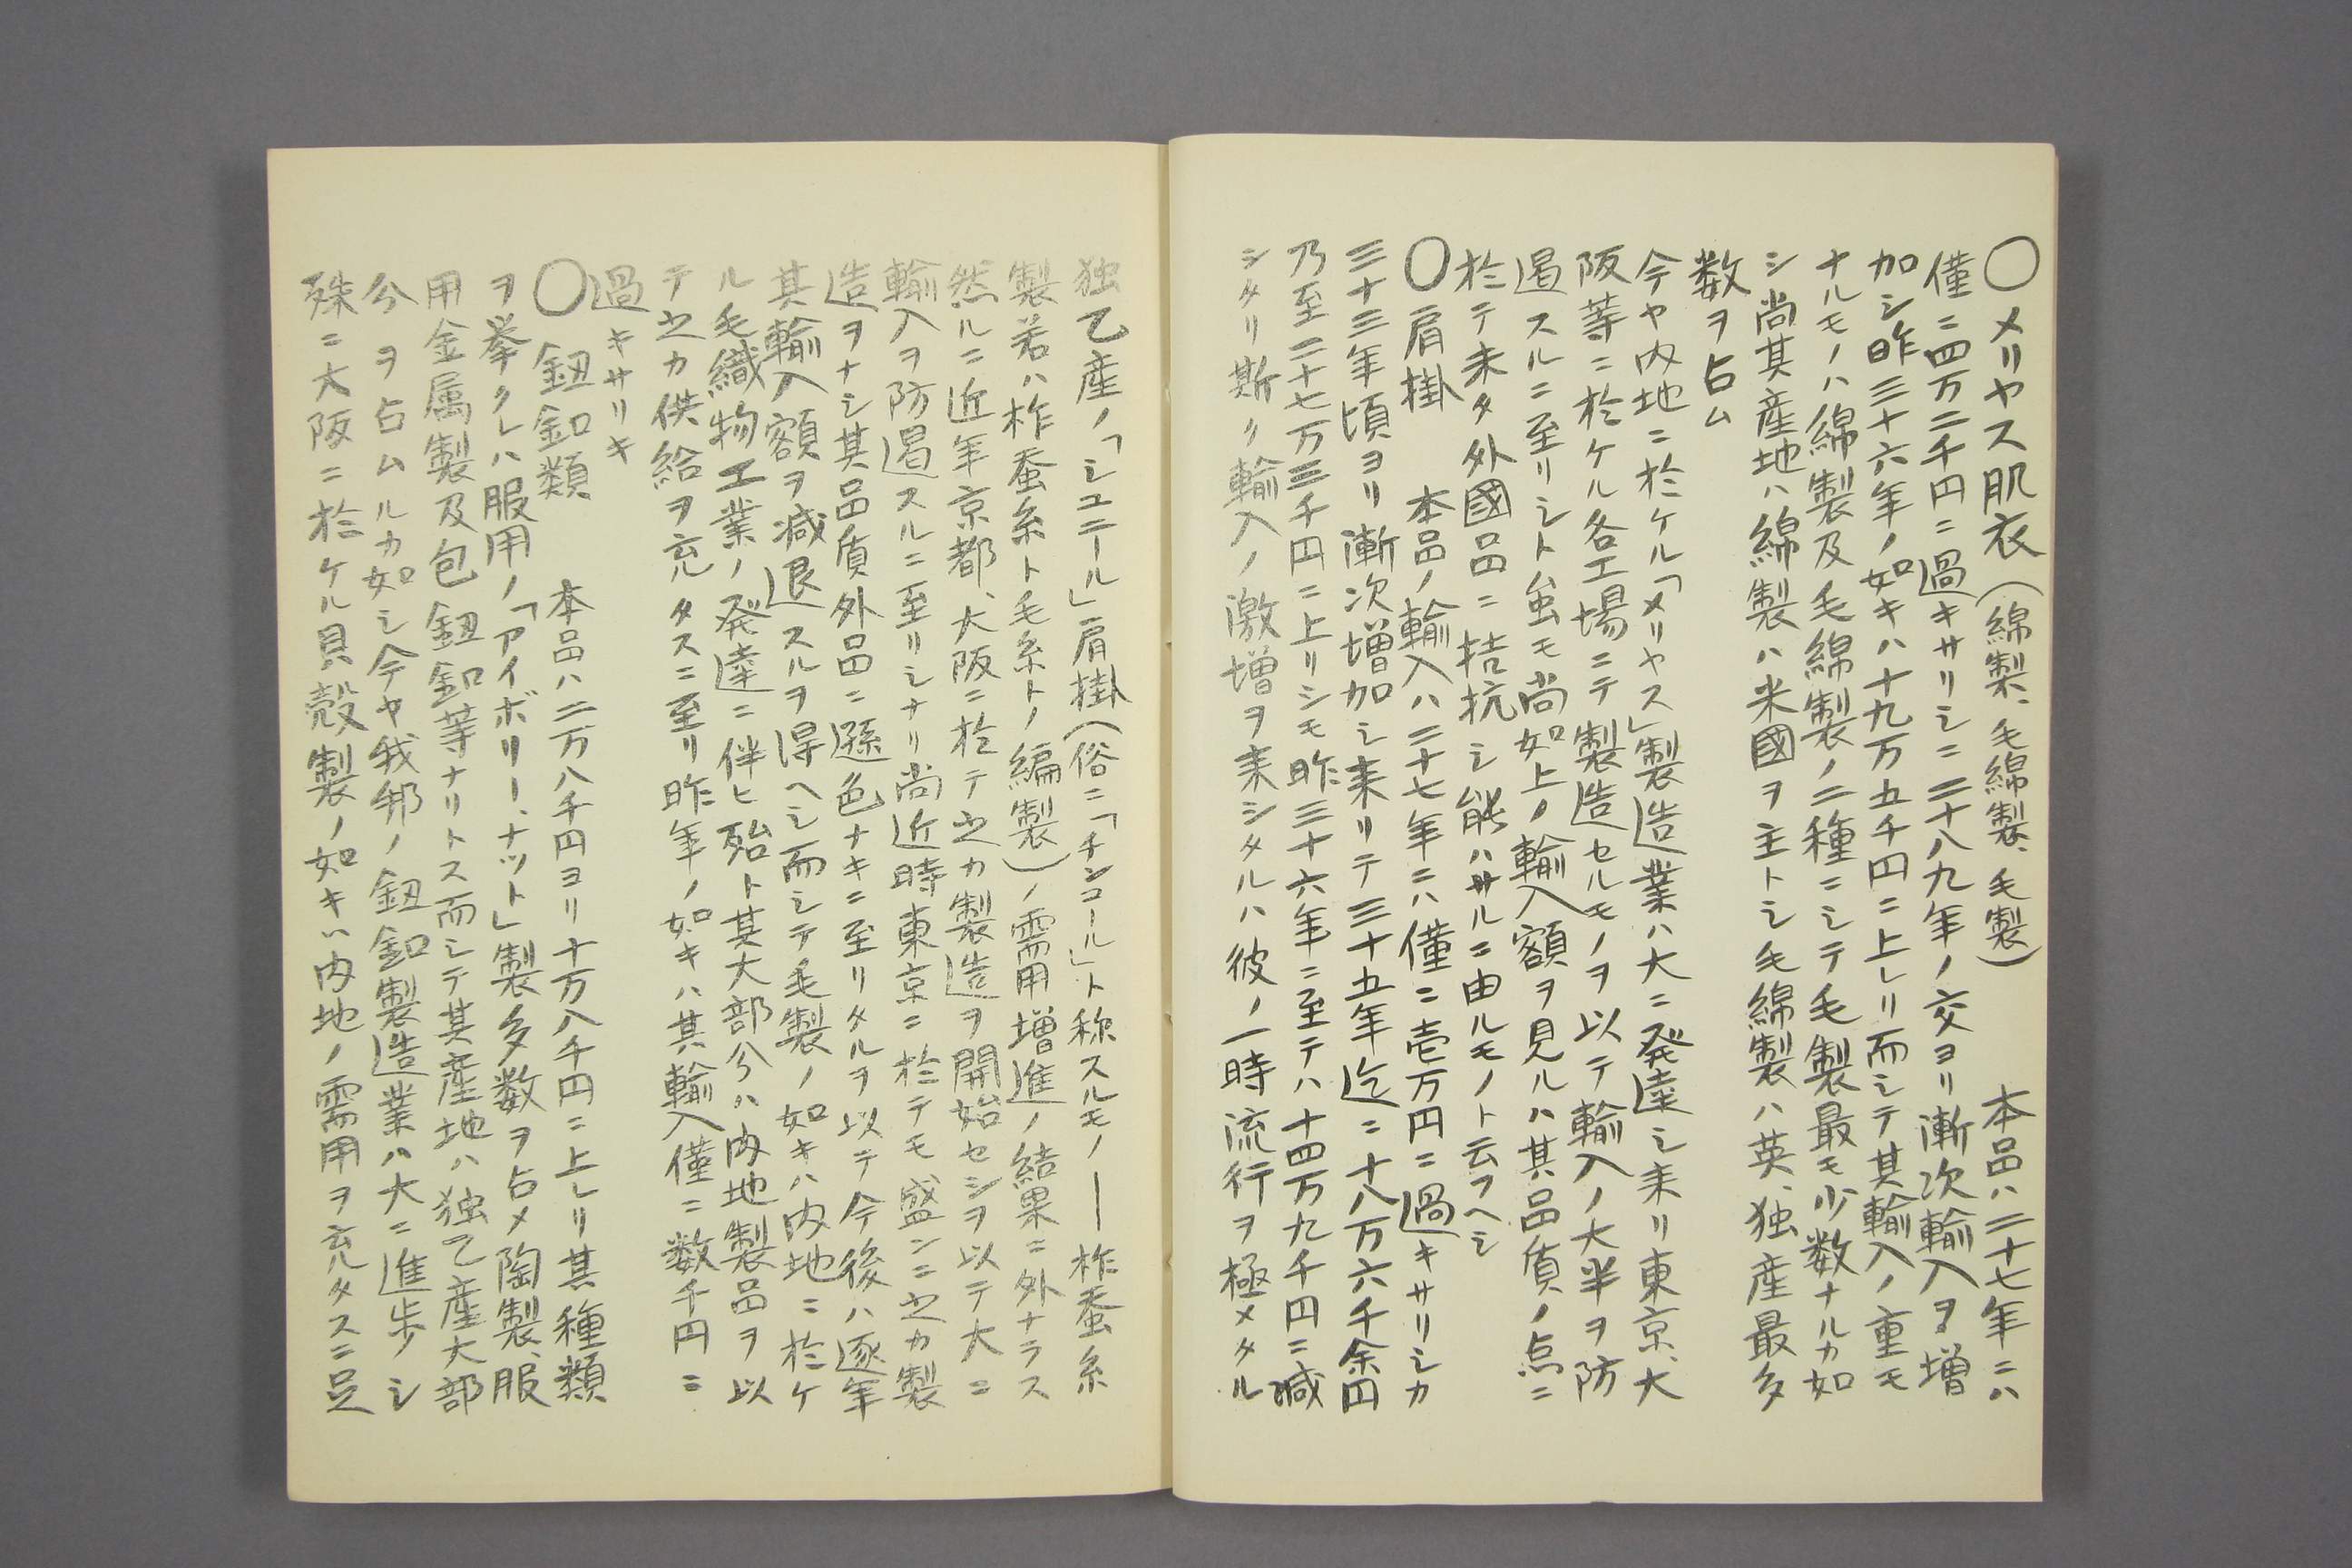 〇メリヤス肌衣(綿製、毛綿製、毛製) 本品ハ二十七年ニハ
僅ニ四万二千円ニ過キサリシニ二十八九年ノ交ヨリ漸次輸入ヲ増
加シ昨三十六年ノ如キハ十九万五千円ニ上レリ而シテ其輸入ノ重モ
ナルモノハ綿製及毛綿製ノ二種ニシテ毛製最モ少数ナルカ如
シ尚其産地ハ綿製ハ米國ヲ主トシ毛綿製ハ英、独産最多
数ヲ占ム
今ヤ内地ニ於ケル「メリヤス」製造業ハ大ニ発達シ来リ東京、大
阪等ニ於ケル各工場ニテ製造セルモノヲ以テ輸入ノ大半ヲ防
遏スルニ至リシト虽モ尚如上ノ輸入額ヲ見ルハ其品質ノ点ニ
於テ未タ外國品ニ拮抗シ能ハサルニ由ルモノト云フヘシ
〇肩掛 本品ノ輸入ハ二十七年ニハ僅ニ壱万円ニ過キサリシカ
三十三年頃ヨリ漸次増加シ来リテ三十五年迄ニ十八万六千余円
乃至二十七万三千円ニ上リシモ昨三十六年ニ至テハ十四万九千円ニ減
シタリ斯ク輸入ノ激増ヲ来シタルハ彼ノ一時流行ヲ極メタル
独乙産ノ「シユニール」肩掛(俗ニ「チンコール」ト称スルモノ―柞蚕糸
製若ハ柞蚕糸ト毛糸トノ編製)ノ需用増進ノ結果ニ外ナラス
然ルニ近年京都、大阪ニ於テ之カ製造ヲ開始セシヲ以テ大ニ
輸入ヲ防遏スルニ至リシナリ尚近時東京ニ於テモ盛ンニ之カ製
造ヲナシ其品質外品ニ遜色ナキニ至リタルヲ以テ今後ハ逐年
其輸入額ヲ減退スルヲ得ヘシ而シテ毛製ノ如キハ内地ニ於ケ
ル毛織物工業ノ発達ニ伴ヒ殆ト其大部分ハ内地製品ヲ以
テ之カ供給ヲ充タスニ至リ昨年ノ如キハ其輸入僅ニ数千円ニ
過キサリキ
〇釦鈕類 本品ハ二万八千円ヨリ十万八千円ニ上レリ其種類
ヲ挙クレハ服用ノ「アイボリー、ナット」製多数ヲ占メ陶製、服
用金属製及包鈕釦等ナリトス而シテ其産地ハ独乙産大部
分ヲ占ムルカ如シ今ヤ我邦ノ鈕釦製造業ハ大ニ進歩シ
殊ニ大阪ニ於ケル貝殻製ノ如キハ内地ノ需用ヲ充タスニ足